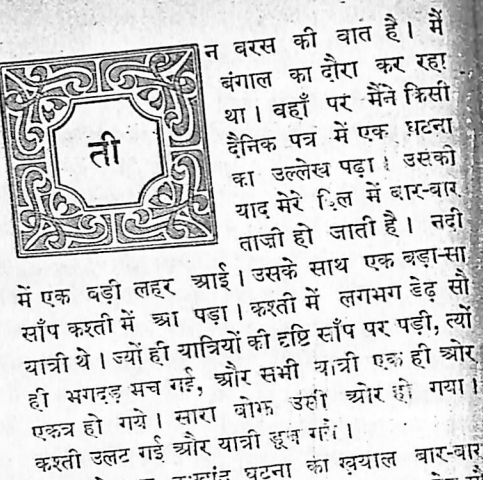 तीन बरस की बात है। मैं
बंगाल का दौरा कर रहा
था। वहाँ पर मैंने किसी
दैनिक पत्र में एक घटना
का उल्लेख पढ़ा। उसकी
याद मेरे दिल में बार-बार
ताज़ी हो जाती है। नदी
में एक बड़ी लहर आई। उसके साथ एक बड़ा-सा
साँप कश्ती में आ पड़ा। कश्ती में लगभग डेढ़ सौ
यात्री थे। ज्यों ही यात्रियों की दृष्टि साँप पर पड़ी, त्यों
ही भगदड़ मच गई, और सभी यात्री एक ही ओर
एकत्र हो गये। सारा बोझ उसी ओर हो गया।
कश्ती उलट गई और यात्री डूब गये।
घटना का ख़याल बार-बार